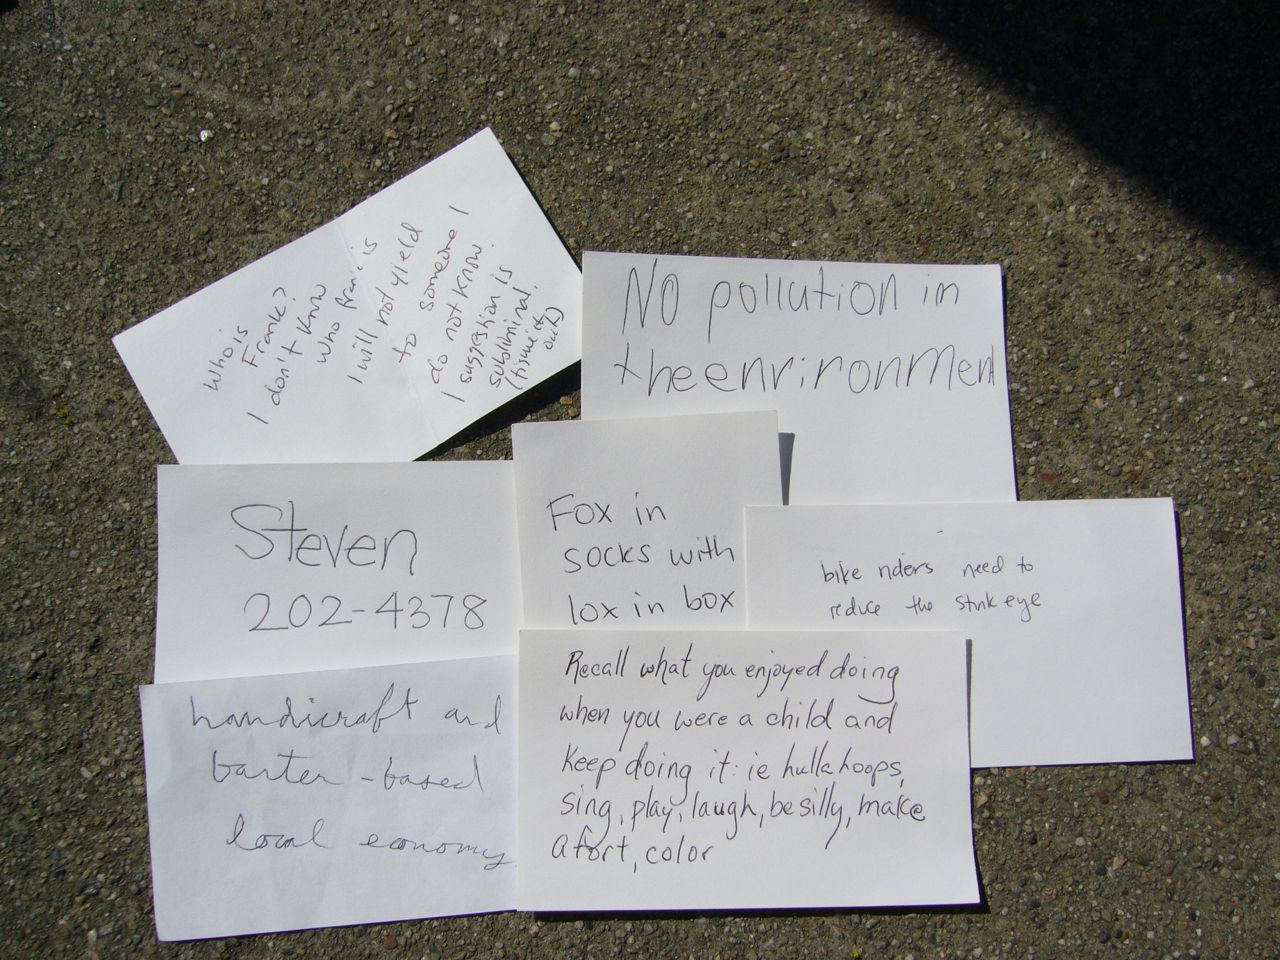 who is
Frank?
I don't know
who frank is
I will not yield
to someone I
do not know.
I suggestion is
subliminal.
(tisue it
out)
No pollution in
the enrironment
Steven
202-4378
Fox in
socks with
lox in box
bike riders need to
reduce the stink eye
handicraft and
barter-based
local economy
Recall what you enjoyed doing
when you were a child and
Keep doing it: ie hulla hoops,
sing, play, laugh, be silly, make
a fort, color